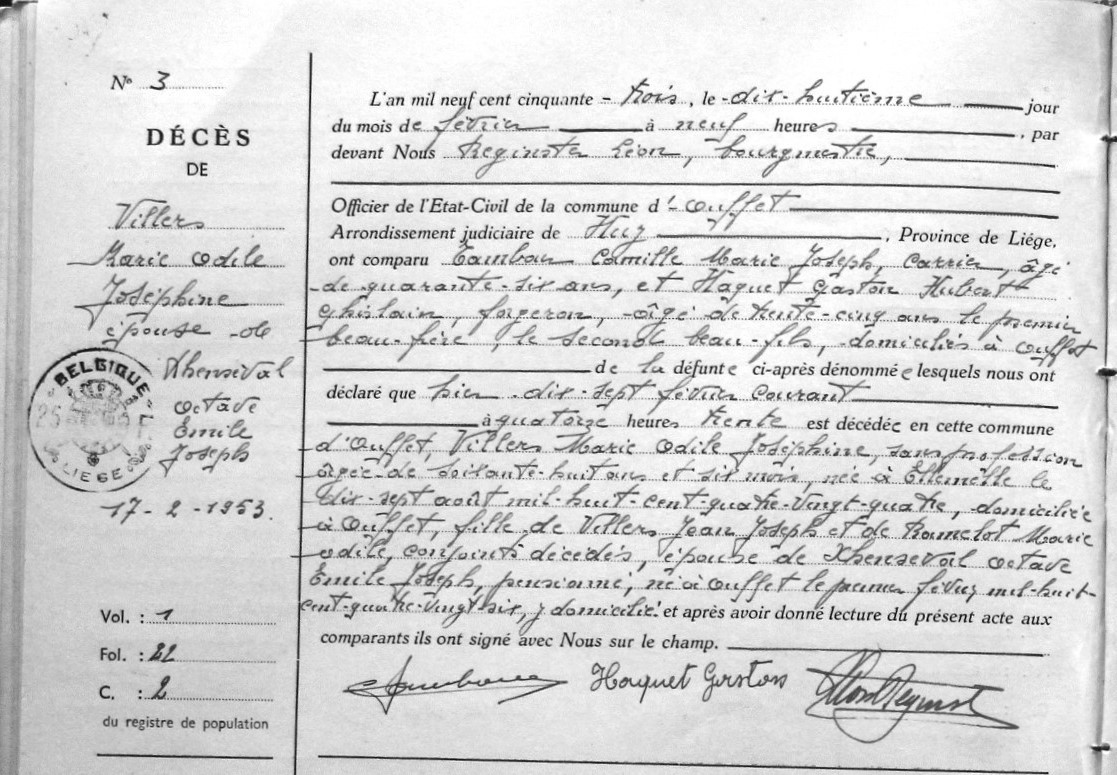 N° 3
DÉCÈS
DE
Villers
Marie Odile
Joséphine
épouse de
Xhenseval
Octave
Emile
Joseph
BELGIQUE
LIEGE
17-2-1953.
Vol. : 1
Fol. : 22
C. : 2
du registre de population
L'an mil neuf cent cinquante - trois, le dix-huitième jour
du mois de février à neuf heures, par
devant Nous Reginster Léon, bourgmestre,
Officier de l'Etat-Civil de la commune d'Ouffet
Arrondissement judiciaire de Huy, Province de Liége,
ont comparu Tambour Camille Marie Joseph, carrier, âgé
de quarante-six ans, et Haquet Gaston Hubert
Ghislain, forgeron, âgé de trente-cinq ans le premier
beau-frère, le second beau-fils, domiciliés à Ouffet
de la défunte ci-après dénommée lesquels nous ont
déclaré que hier dix-sept février courant
à quatorze heures trente est décédée en cette commune
d'Ouffet, Villers Marie Odile Joséphine, sans profession
âgée de soixante-huit ans et six mois, née à Ellemelle le
dix-sept août mil-huit-cent-quatre-vingt-quatre, domiciliée
à Ouffet, fille de Villers Jean Joseph et de Ramelot Marie
Odile, conjoints décédés, épouse de Xhenseval Octave
Emile Joseph, pensionné, né à Ouffet le premier février mil-huit-
cent-quatre-vingt-six, y domicilié. et après avoir donné lecture du présent acte aux
comparants ils ont signé avec Nous sur le champ.
Haquet Gaston